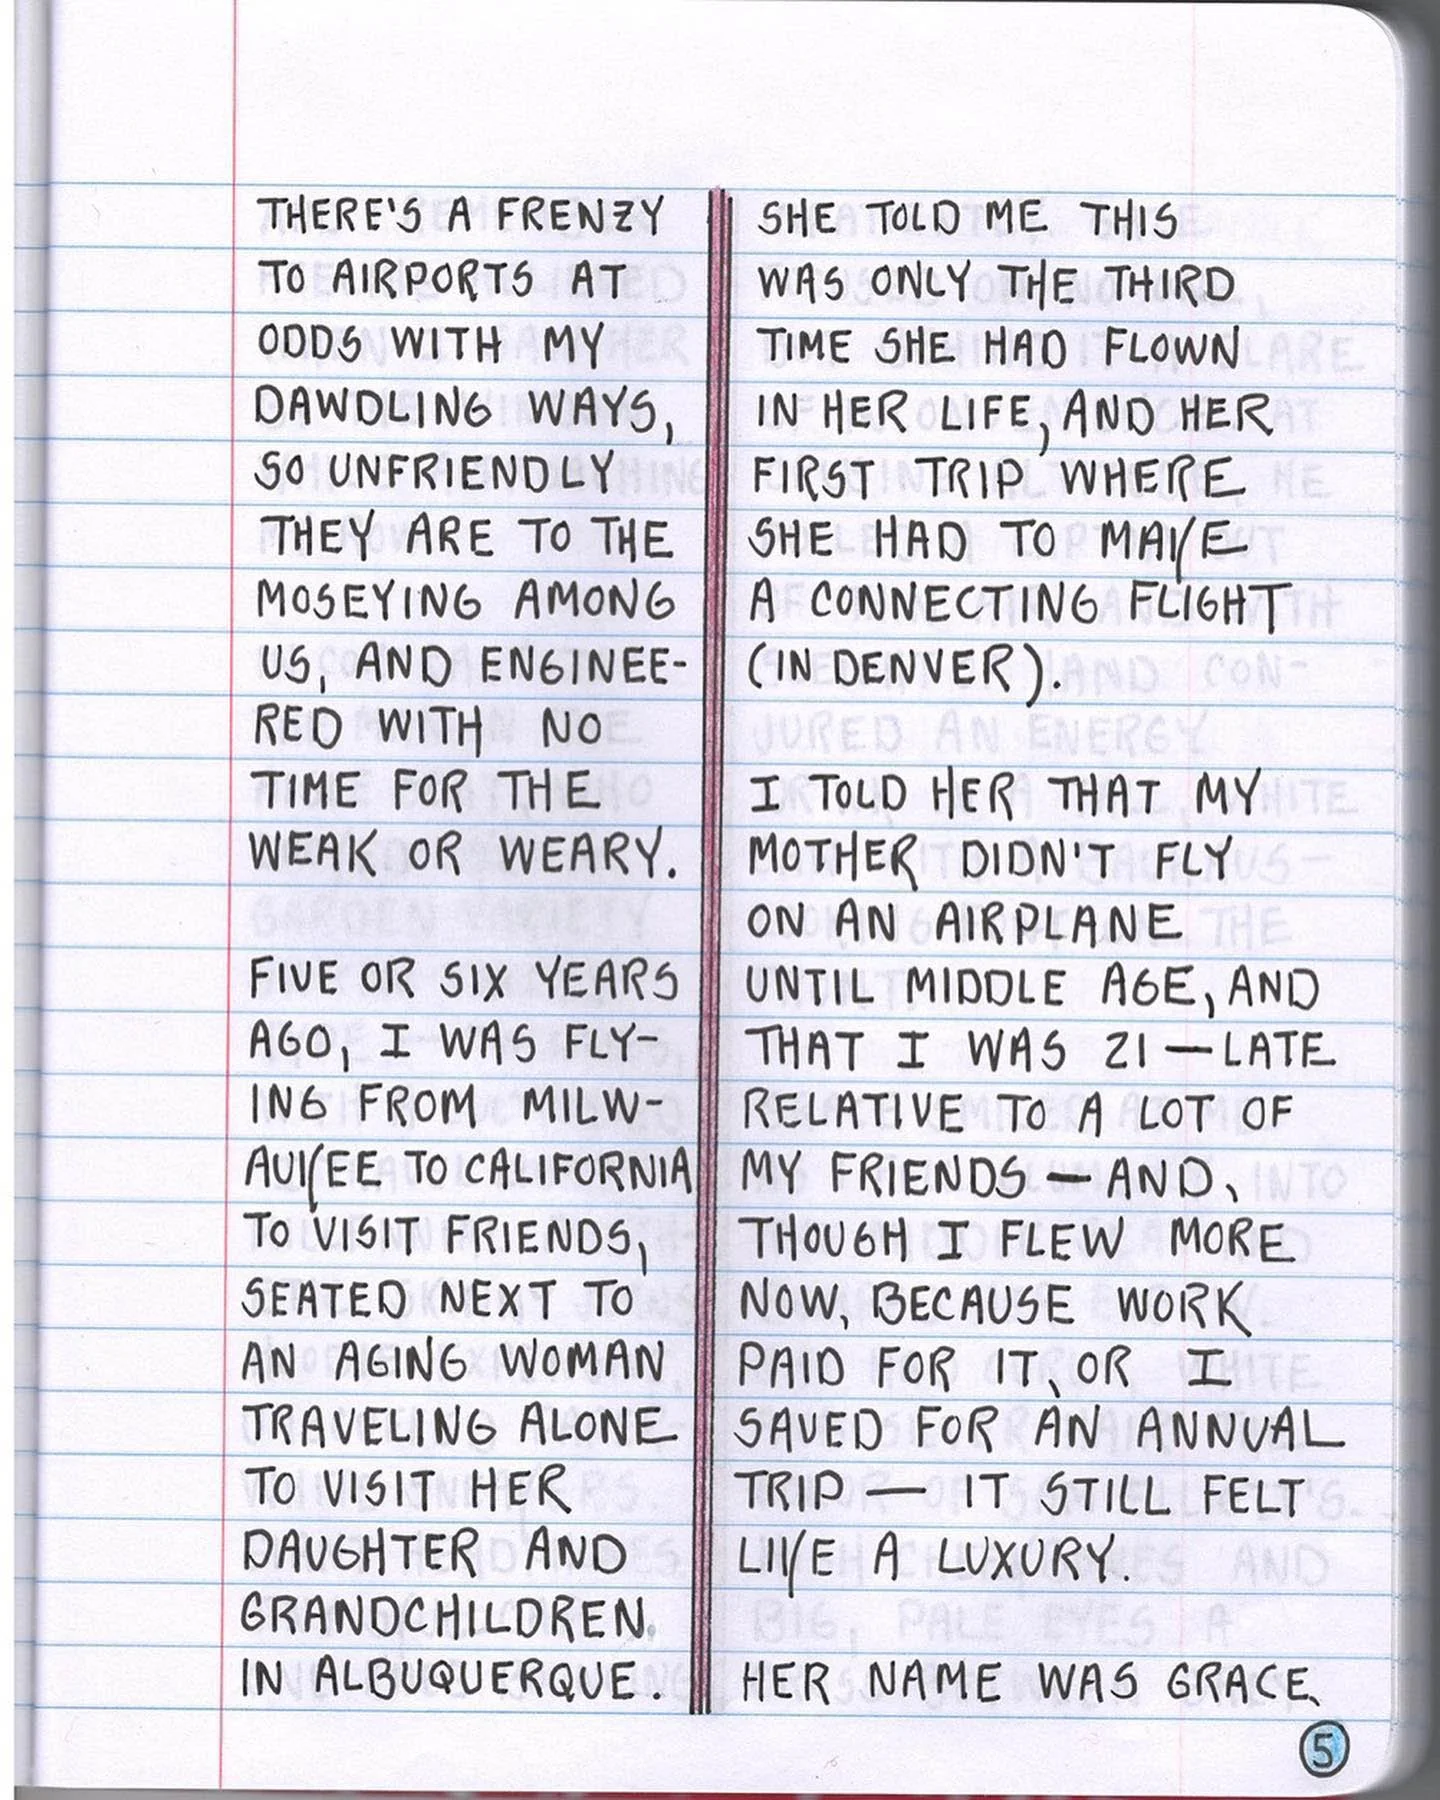 THERE'S A FRENZY
TO AIRPORTS AT
ODDS WITH MY
DAWDLING WAYS,
SO UNFRIENDLY
THEY ARE TO THE
MOSEYING AMONG
US, AND ENGINEE-
RED WITH NO
TIME FOR THE
WEAK OR WEARY.
FIVE OR SIX YEARS
AGO, I WAS FLY-
ING FROM MILW-
AUKEE TO CALIFORNIA
TO VISIT FRIENDS,
SEATED NEXT TO
AN AGING WOMAN
TRAVELING ALONE
TO VISIT HER
DAUGHTER AND
GRANDCHILDREN
IN ALBUQUERQUE.
SHE TOLD ME THIS
WAS ONLY THE THIRD
TIME SHE HAD FLOWN
IN HER LIFE, AND HER
FIRST TRIP WHERE
SHE HAD TO MAKE
A CONNECTING FLIGHT
(IN DENVER).
I TOLD HER THAT MY
MOTHER DIDN'T FLY
ON AN AIRPLANE
UNTIL MIDDLE AGE, AND
THAT I WAS 21 — LATE
RELATIVE TO A LOT OF
MY FRIENDS — AND,
THOUGH I FLEW MORE
NOW, BECAUSE WORK
PAID FOR IT, OR I
SAVED FOR AN ANNUAL
TRIP — IT STILL FELT
LIKE A LUXURY.
HER NAME WAS GRACE.
5